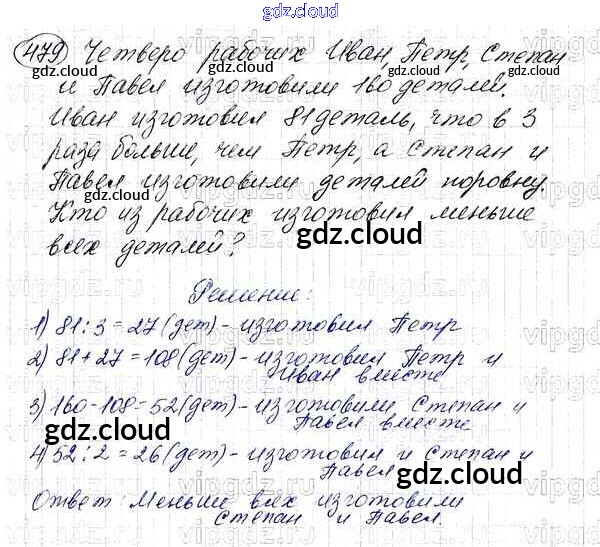 gdz.cloud
479 Четверо рабочих Иван, Петр, Степан
и Павел изготовили 160 деталей.
Иван изготовил 81 деталь, что в 3
раза больше, чем Петр, а Степан и
Павел изготовили деталей поровну.
Кто из рабочих изготовил меньше
всех деталей?
Решение:
1) 81 : 3 = 27 (дет) - изготовил Петр
2) 81 + 27 = 108 (дет) - изготовили Петр и
Иван вместе
3) 160 - 108 = 52 (дет) - изготовили Степан и
Павел вместе
4) 52 : 2 = 26 (дет) - изготовили Степан и
Павел
Ответ: Меньше всех изготовили
Степан и Павел.